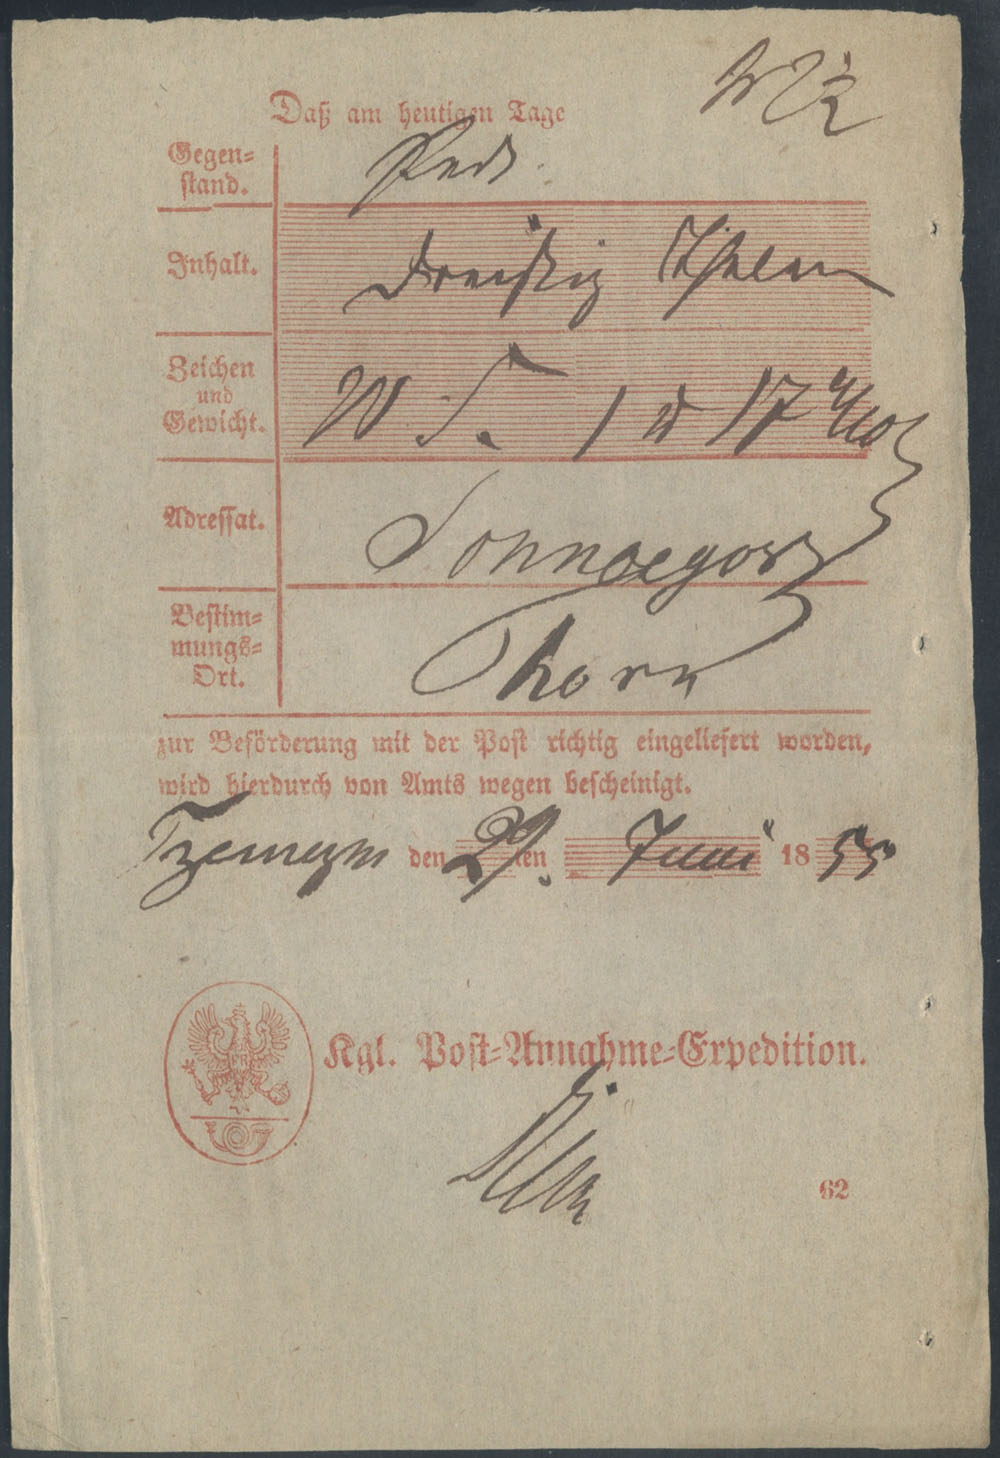 Daß am heutigen Tage
Gegen=
stand.
Inhalt.
dreißig Thaler
Zeichen
und
Gewicht.
W S. 1 17
Adressat.
Bestim=
mungs=
Ort.
Thorn
zur Beförderung mit der Post richtig eingeliefert worden,
wird hierdurch von Amts wegen bescheinigt.
Trzemeszno den 29ten Juni 1855
Kgl. Post=Annahme=Expedition.
62